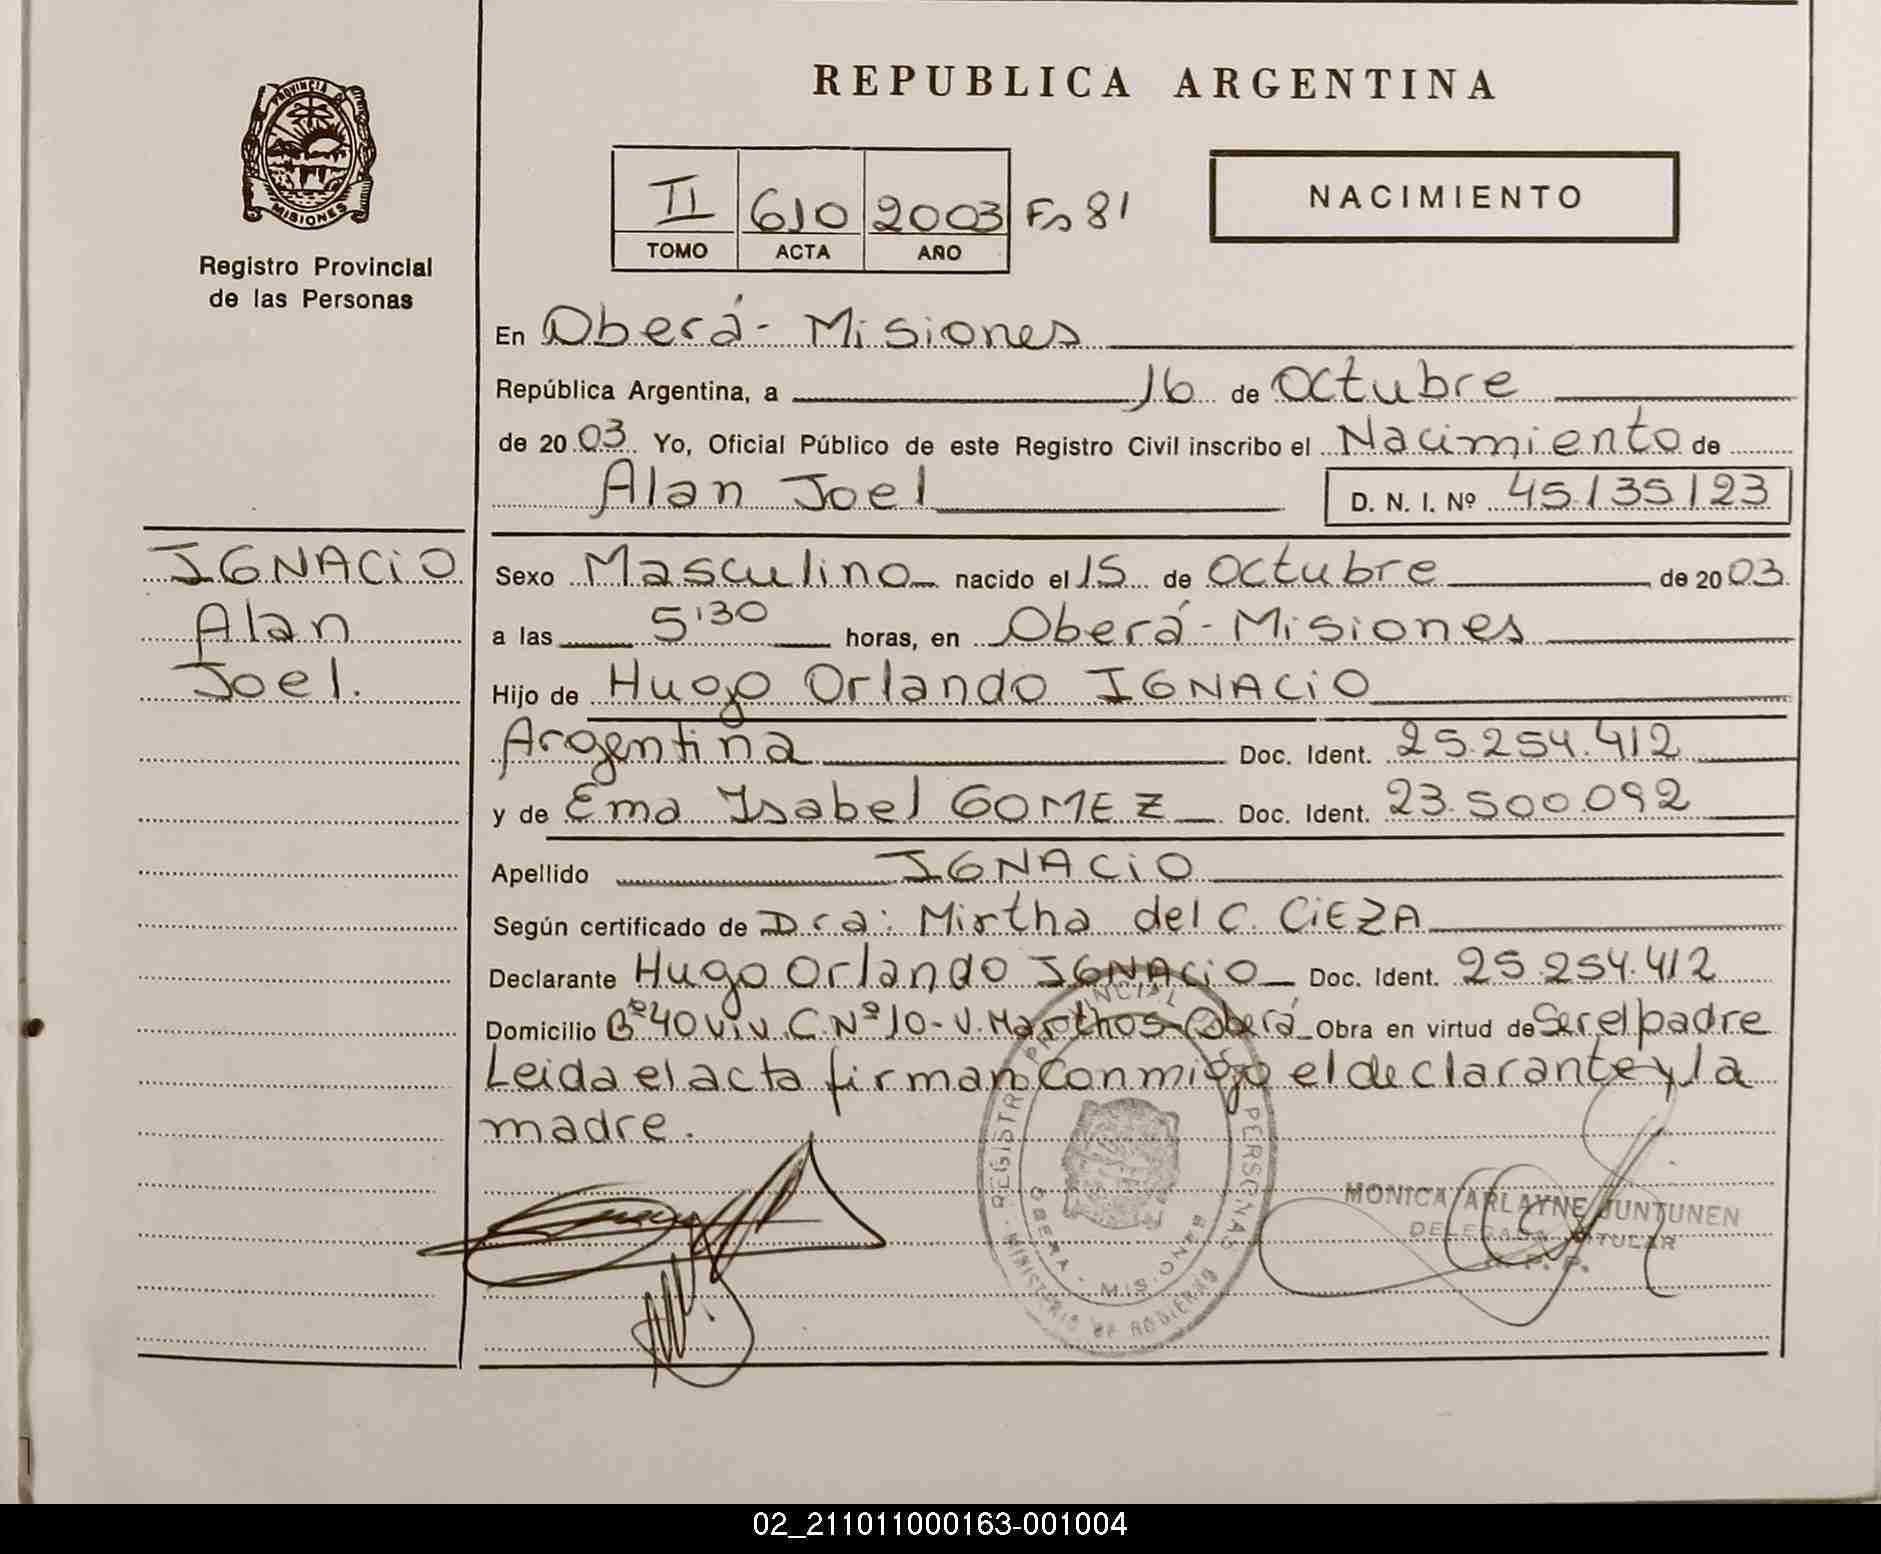 PROVINCIA DE
MISIONES
Registro Provincial
de las Personas
REPUBLICA ARGENTINA
II 610 2003 Fs 81
TOMO ACTA AÑO
NACIMIENTO
En Oberá - Misiones
República Argentina, a 16 de Octubre
de 2003 Yo, Oficial Público de este Registro Civil inscribo el Nacimiento de
Alan Joel D. N. I. Nº 45.135.123
IGNACiO
Alan
Joel.
Sexo Masculino nacido el 15 de Octubre de 2003
a las 5'30 horas, en Oberá - Misiones
Hijo de Hugo Orlando IGNACiO
Argentina Doc. Ident. 25.254.412
y de Ema Isabel GOMEZ Doc. Ident. 23.500.092
Apellido IGNACiO
Según certificado de Dra: Mirtha del C. CiEZA
Declarante Hugo Orlando IGNACiO Doc. Ident. 25.254.412
Domicilio Bº 40 Viv. C. Nº 10 - V. Marthos - Oberá Obra en virtud de Ser el padre
Leida el acta firman Conmigo el declarante y la
madre.
REGISTRO PROVINCIAL PERSONAS
OBERA - MISIONES
MINISTERIO DE GOBIERNO
MONICA ARLAYNE JUNTUNEN
DELEGADA TITULAR
R. P. P.
02_211011000163-001004